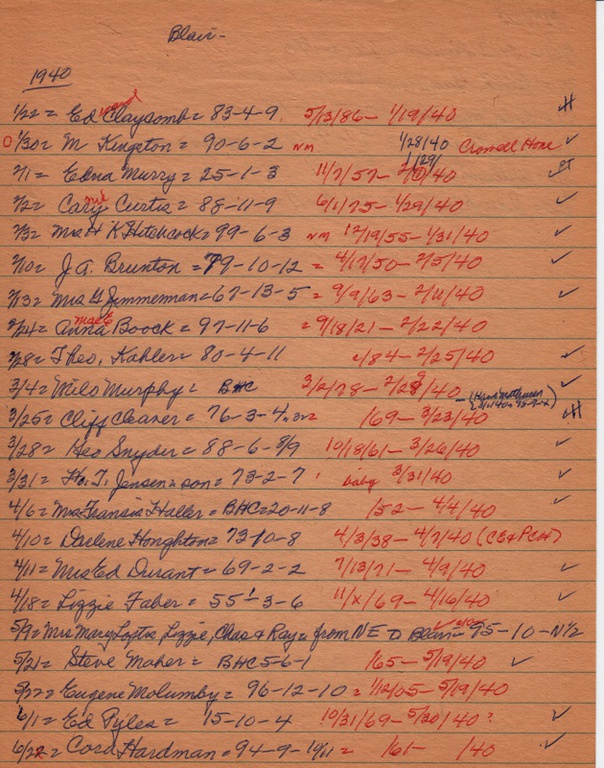 Blair-
1940
1/22 = Ed Claysomb = 83-4-9 5/13/86 - 1/19/40 H
0 1/30 = M Kingston = 90-6-2 nm 1/28/40 Cromwell Hone ✓
2/1 = Edna Murry = 25-1-3 11/7/57 - 2/0/40 1/29/ PT
2/2 = Cary Curtis = 88-11-9 6/1/75 - 1/29/40 ✓
2/3 = Mrs H K Hitchcock = 99-6-3 nm 12/19/55 - 1/31/40 ✓
2/10 = J.A. Brunton = 79-10-12 = 4/17/50 - 2/5/40 ✓
2/13 = Mrs G Zimmerman = 67-13-5 = 9/9/63 - 2/11/40 ✓
2/24 = Anna Mae Boock = 97-11-6 = 9/18/21 - 2/22/40
2/28 = Theo. Kahler = 80-4-11 /84 - 2/25/40 ✓
3/4 = Milo Murphy = BHC 3/2/78 - 2/29/40 ✓
3/25 = Cliff Cleaver = 76-3-4 /69 - 3/23/40 H
3/28 = Geo Snyder = 88-6-8/9 10/18/61 - 3/26/40 ✓
3/31 = Jensen = son = 73-2-7 baby 3/31/40 ✓
4/6 = Mrs Francis Haller = BHC = 20-11-8 /52 - 4/4/40 ✓
4/10 = Darlene Honghton = 73-10-8 4/3/38 - 4/7/40 (CE & PCH)
4/11 = Mrs Ed Durant = 69-2-2 7/13/71 - 4/9/40 ✓
4/18 = Lizzie Faber = 55-3-6 11/x/69 - 4/16/40 ✓
5/9 = Mrs Mary Loftis, Lizzie, Chas & Ray = from NE D Blair = 75-10-N 1/2
5/21 = Steve Maher = BHC 5-6-1 /65 - 5/19/40 ✓
5/22 = Eugene Molumby = 96-12-10 = 1/12/05 - 5/19/40
6/1 = Ed Pyles = 15-10-4 10/31/69 - 5/30/40 ? ✓
6/22 = Cora Hardman = 94-9-10/11 = /61 - /40 ✓